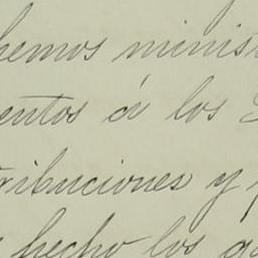 hemos minist
entos á los
ribuciones y
hecho los g